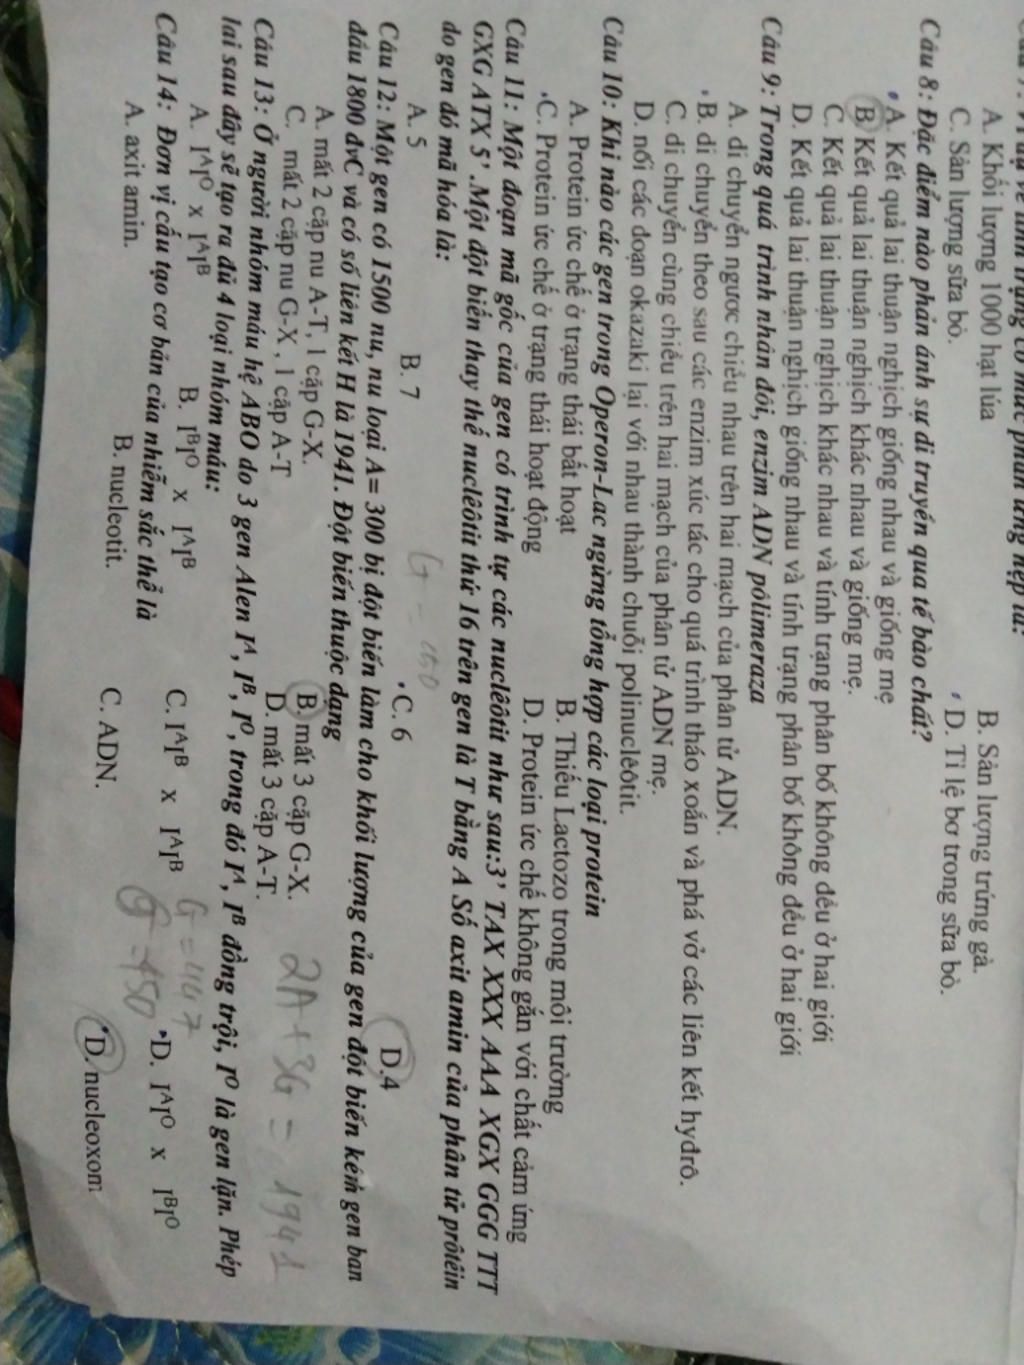 A. Khối lượng 1000 hạt lúa B. Sản lượng trứng gà.
C. Sản lượng sữa bò. D. Tỉ lệ bơ trong sữa bò.
Câu 8: Đặc điểm nào phản ánh sự di truyền qua tế bào chất?
A. Kết quả lai thuận nghịch giống nhau và giống mẹ
B. Kết quả lai thuận nghịch khác nhau và giống mẹ.
C. Kết quả lai thuận nghịch khác nhau và tính trạng phân bố không đều ở hai giới
D. Kết quả lai thuận nghịch giống nhau và tính trạng phân bố không đều ở hai giới
Câu 9: Trong quá trình nhân đôi, enzim ADN pôlimeraza
A. di chuyển ngược chiều nhau trên hai mạch của phân tử ADN.
B. di chuyển theo sau các enzim xúc tác cho quá trình tháo xoắn và phá vở các liên kết hydrô.
C. di chuyển cùng chiều trên hai mạch của phân tử ADN mẹ.
D. nối các đoạn okazaki lại với nhau thành chuỗi polinuclêôtit.
Câu 10: Khi nào các gen trong Operon-Lac ngừng tổng hợp các loại protein
A. Protein ức chế ở trạng thái bất hoạt B. Thiếu Lactozo trong môi trường
C. Protein ức chế ở trạng thái hoạt động D. Protein ức chế không gắn với chất cảm ứng
Câu 11: Một đoạn mã gốc của gen có trình tự các nuclêôtit như sau:3’ TAX XXX AAA XGX GGG TTT
GXG ATX 5’ .Một đột biến thay thế nuclêôtit thứ 16 trên gen là T bằng A Số axit amin của phân tử prôtêin
do gen đó mã hóa là:
A. 5 B. 7 C. 6 D.4
Câu 12: Một gen có 1500 nu, nu loại A= 300 bị đột biến làm cho khối lượng của gen đột biến kém gen ban
đầu 1800 đvC và có số liên kết H là 1941. Đột biến thuộc dạng
A. mất 2 cặp nu A-T, 1 cặp G-X. B. mất 3 cặp G-X.
C. mất 2 cặp nu G-X , 1 cặp A-T D. mất 3 cặp A-T.
2A + 3G = 1941
Câu 13: Ở người nhóm máu hệ ABO do 3 gen Alen Iᴬ, Iᴮ, Iᴼ , trong đó Iᴬ, Iᴮ đồng trội, Iᴼ là gen lặn. Phép
lai sau đây sẽ tạo ra đủ 4 loại nhóm máu:
G = 447
A. IᴬIᴼ x IᴬIᴮ B. IᴮIᴼ x IᴬIᴮ C. IᴬIᴮ x IᴬIᴮ D. IᴬIᴼ x IᴮIᴼ
G = 450
Câu 14: Đơn vị cấu tạo cơ bản của nhiễm sắc thể là
A. axit amin. B. nucleotit. C. ADN. D. nucleoxom